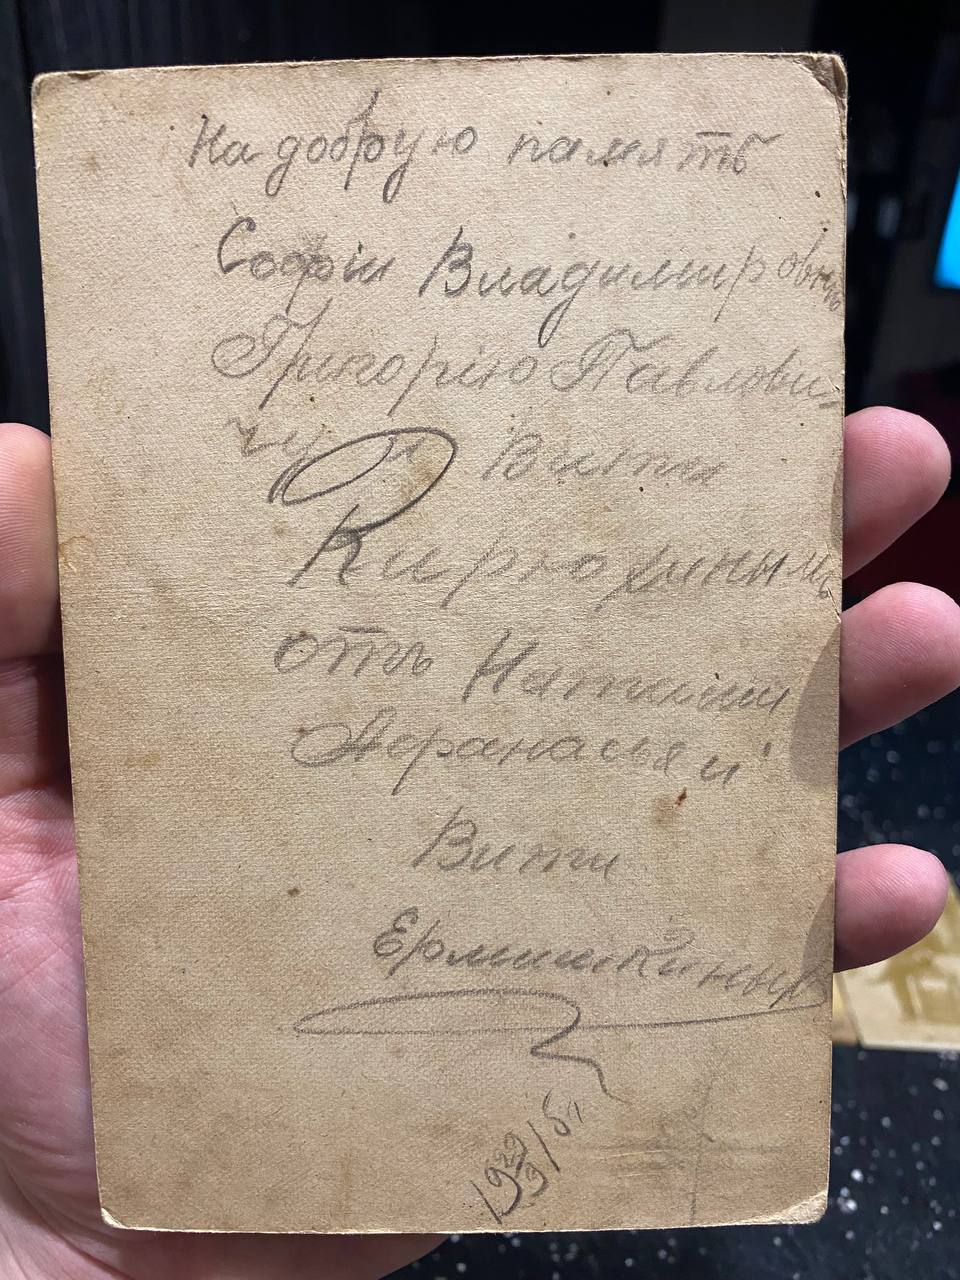 На добрую память
Софiи Владимировнъ
Григорiю Павлови-
чу и Вити
Кирюхинымъ
отъ Наталии
Афанасья и
Вити
Ермишкиныхъ